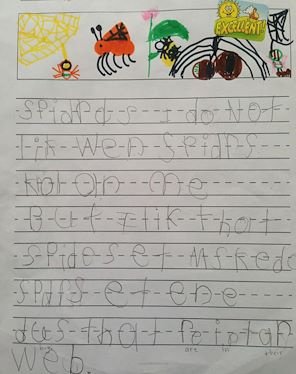 EXCELLENT!
Spidrs I do Not
lik wen Spidrs
krol on me
But I lik thot
Spides et Mskedos
Spidrs et ene
dugs that re in ter
bugs are in their
web.